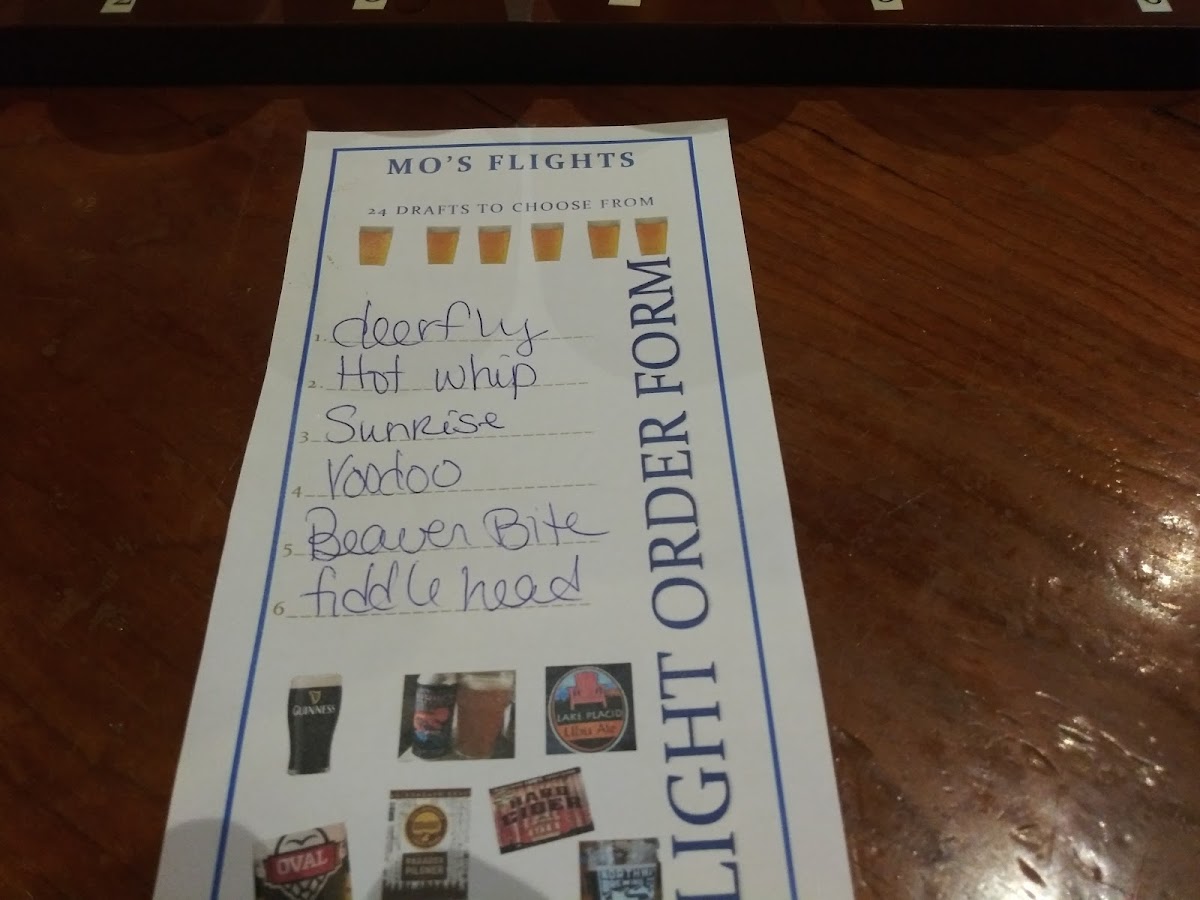 MO'S FLIGHTS
24 DRAFTS TO CHOOSE FROM
1. deerfly
2. Hot whip
3 Sunrise
4 Voodoo
5 Beaver Bite
6 fiddle head
LIGHT ORDER FORM
GUINNESS
LAKE PLACID
Ubu Ale
HARD
CIDER
OVAL
PARADOX
PILSNER